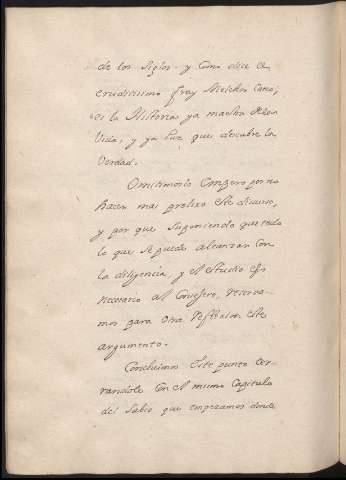 de los Siglos. y Como dice el
eruditissimo fray Melchor Cano;
es la Historia ya maestra de la
Vida; y ya luz que descubre la
Verdad.
Omitimoslo Empero por no
hacer mas prolixo este discurso,
y por que suponiendo que todo
lo que se puede alcanzar con
la diligencia, y el estudio es
necesario al Consejero, reserva-
mos para otra reflexion este
argumento.
Concluimos este punto cer-
randole Con el mismo Capitulo
del Sabio que empezamos donde